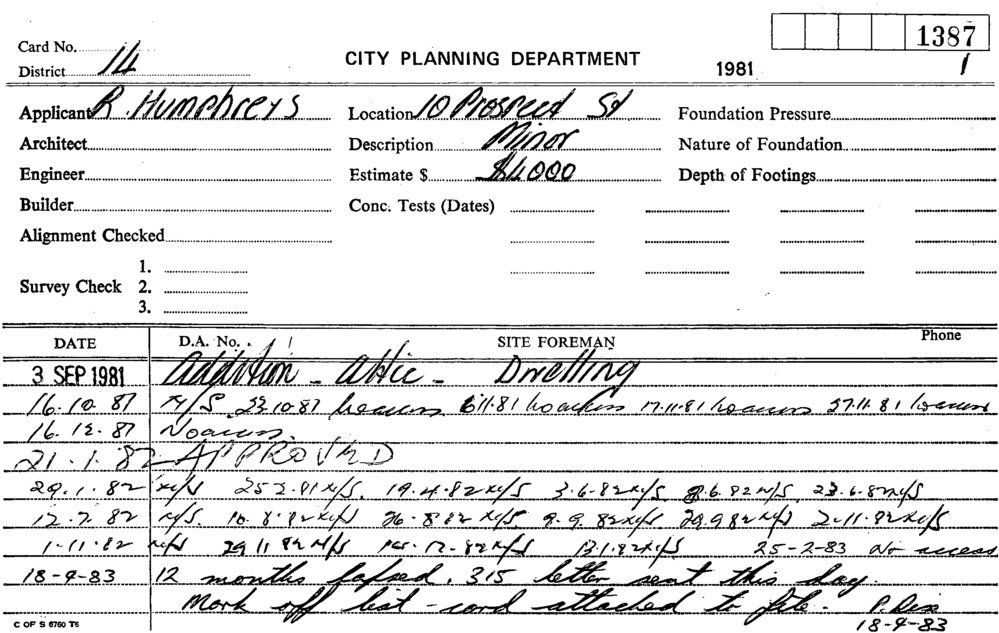 1387
Card No.
District 14
CITY PLANNING DEPARTMENT
1981
1
Applicant R. Humphreys
Location 10 Prospect St
Foundation Pressure
Architect
Description Minor
Nature of Foundation
Engineer
Estimate $ $4000
Depth of Footings
Builder
Conc. Tests (Dates)
Alignment Checked
1.
Survey Check 2.
3.
DATE D.A. No. SITE FOREMAN Phone
3 SEP 1981 Addition - Attic - Dwelling
16.10.81 N/S. 23.10.81 6.11.81 17.11.81 27.11.81
16.12.81 Noaccess.
21.1.82 - APPROVED
29.1.82 N/S 19.4.82 N/S 3.6.82 N/S 8.6.82 N/S. 23.6.82 N/S
12.7.82 N/S. 26.8.82 N/S. 9.9.82 N/S 29.9.82 N/S 2.11.82 N/S
1.11.82 N/S 29.11.82 N/S 13.1.82 N/S 25-2-83 No access
18-4-83 12 months lapsed. 315 letter sent this day.
Mark off list - card attached to file.
18-4-83
C OF S 6760 T6